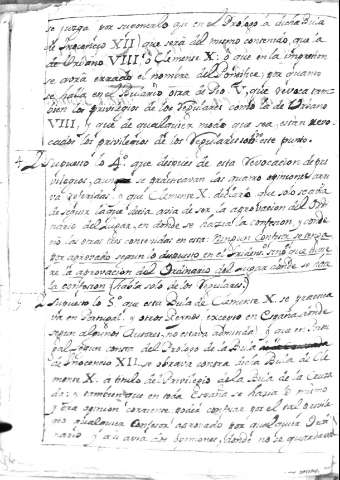 se juzga por suponerlo qu en el Prologo a dicha Bula
de Inocencio XII, que será del mismo contenido, que la
de Urbano VIII, o Clemente X: o que en la impresion
se avrá errado el nombre del Pontifice; por quanto
se halla en el Bulario otra de Pio V, que revoca tam-
bien los privilegios de los Regulares como la de Urbano
VIII, y que de qualquier modo que sea, están revo-
cados los privilegios de los Regulares sobre este punto.
4 Supuesto lo 4º que despues de esta revocacion de pri-
vilegios, se practicaran las quatro opiniones arri-
va referidas, y que Clemente X. declaró que solo se avia
de seguir la que decia avia de ser la aprovacion del Ordi-
nario del Lugar, en donde se hazia la confesion, y conde-
nó las otras tres contenidas en esta: Ningun Confesor se tenga
por aprovado segun lo dispuesto en el Tridentino que
re la aprovacion del Ordinario del Lugar donde se haze
la confesion (habla solo de los Regulares.)
5 Supuesto lo 5º que esta Bula de Clemente X. se practica-
va en Portugal, y otros Reinos, excepto en España donde
segun algunos Autores, no estava admitida; o que en
segun consta del Prologo de la Bula
de Inocencio XII, se obrava contra dicha Bula de Cle-
mente X. a titulo de Privilegio de la Bula de la Cruza-
da; y tambien que en toda España se hazia lo mismo
y era opinion corriente poder confesar por el tal privile-
gio qualquier Confesor aprovado por qualquier Ordi-
nario y avia dos opiniones, donde no se